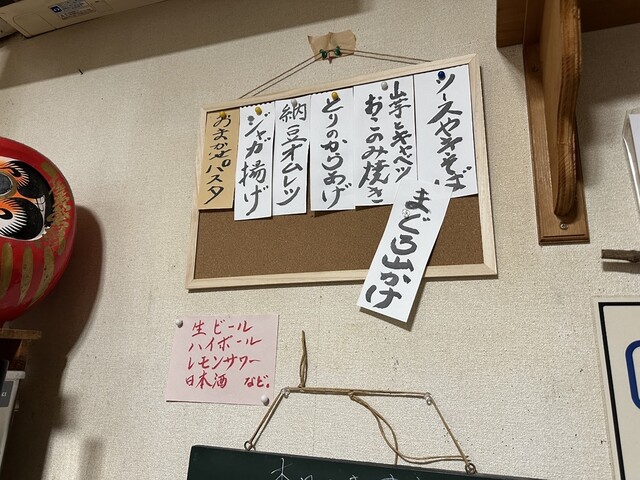 ソースやきそば
山芋とキャベツ
おこのみ焼き
とりのからあげ
納豆オムレツ
ジャガ揚げ
おまかせパスタ
まぐろ山かけ
生ビール
ハイボール
レモンサワー
日本酒 など。